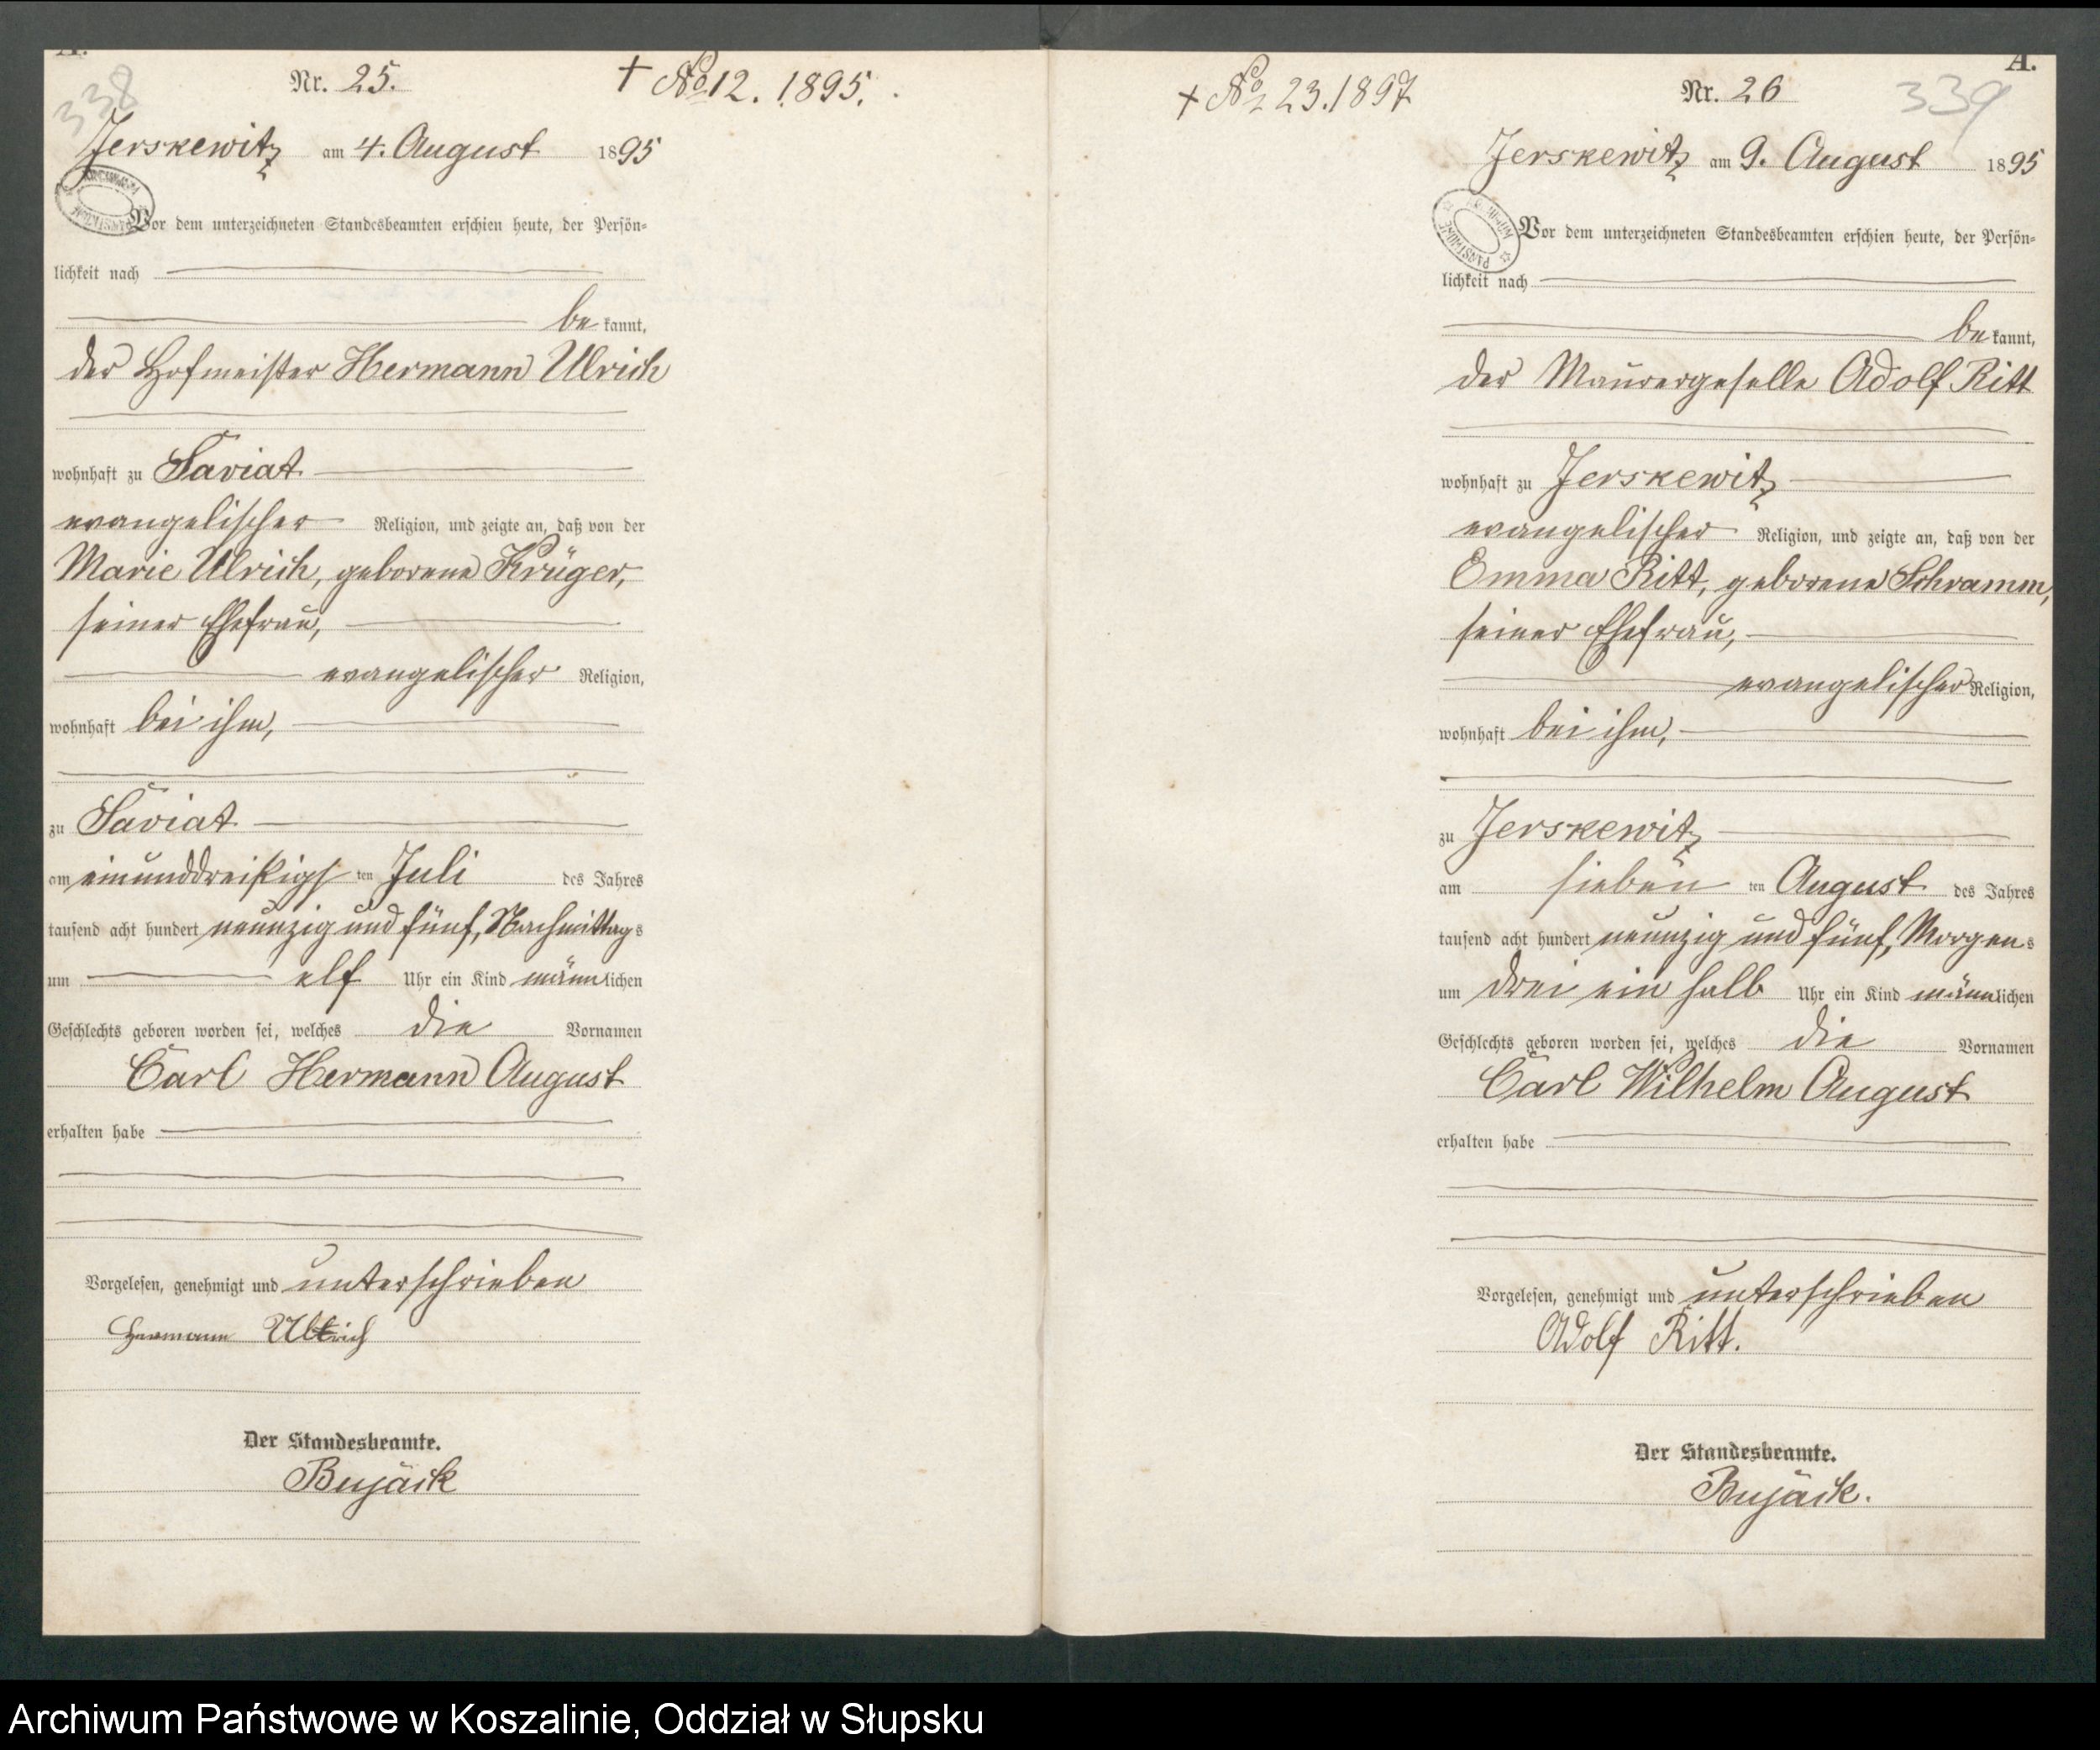 338
Nr. 25.
+ No 12. 1895.
Jerskewitz am 4. August 1895
Vor dem unterzeichneten Standesbeamten erschien heute, der Persön-
lichkeit nach
be kannt,
der Hofmeister Hermann Ulrich
wohnhaft zu Saviat
evangelischer Religion, und zeigte an, daß von der
Marie Ulrich, geborene Krüger,
seiner Ehefrau,
evangelischer Religion,
wohnhaft bei ihm,
zu Saviat
am einunddreißigs ten Juli des Jahres
tausend acht hundert neunzig und fünf, Nachmittags
um elf Uhr ein Kind männlichen
Geschlechts geboren worden sei, welches die Vornamen
Carl Hermann August
erhalten habe
Vorgelesen, genehmigt und unterschrieben
Hermann Ulrich
Der Standesbeamte.
Bujäck
A.
+ No 23. 1897
Nr. 26
339
Jerskewitz am 9. August 1895
Vor dem unterzeichneten Standesbeamten erschien heute, der Persön-
lichkeit nach
be kannt,
der Maurergeselle Adolf Ritt
wohnhaft zu Jerskewitz
evangelischer Religion, und zeigte an, daß von der
Emma Ritt, geborene Schramm,
seiner Ehefrau,
evangelischer Religion,
wohnhaft bei ihm,
zu Jerskewitz
am sieben ten August des Jahres
tausend acht hundert neunzig und fünf, Morgens
um drei ein halb Uhr ein Kind männlichen
Geschlechts geboren worden sei, welches die Vornamen
Carl Wilhelm August
erhalten habe
Vorgelesen, genehmigt und unterschrieben
Adolf Ritt.
Der Standesbeamte.
Bujäck.
Archiwum Państwowe w Koszalinie, Oddział w Słupsku